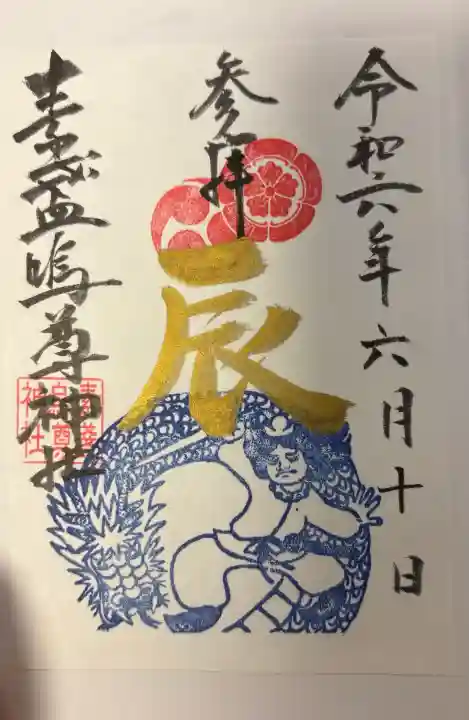 令和六年六月十日
参拝
辰
素盞嗚尊神社
素盞
嗚尊
神社